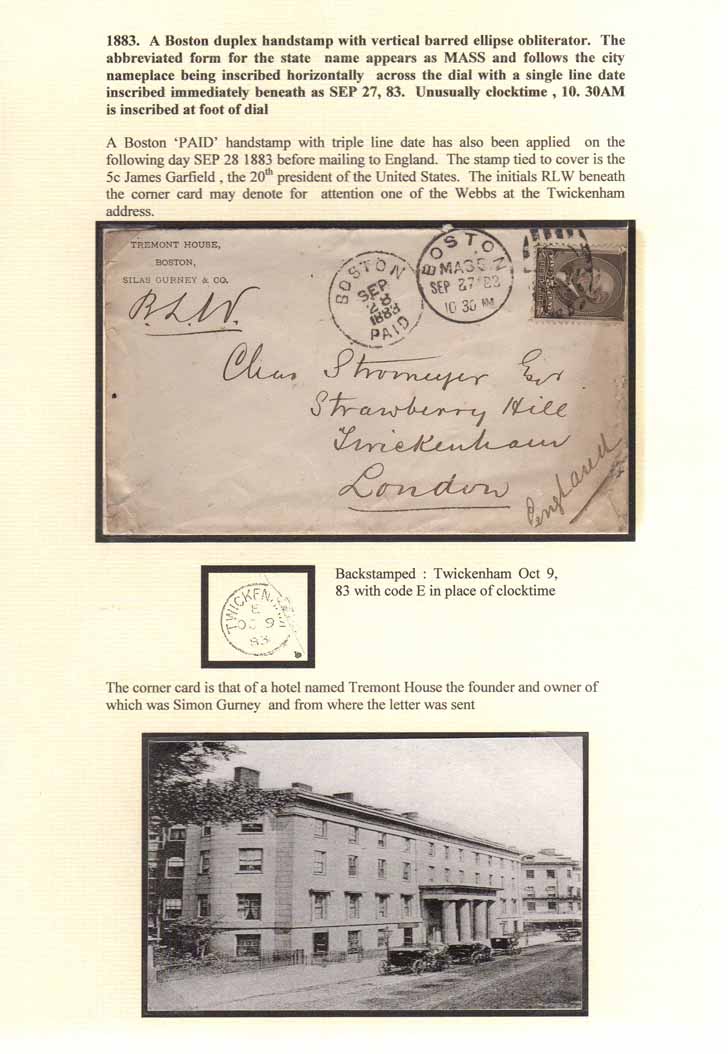 1883. A Boston duplex handstamp with vertical barred ellipse obliterator. The
abbreviated form for the state name appears as MASS and follows the city
nameplace being inscribed horizontally across the dial with a single line date
inscribed immediately beneath as SEP 27, 83. Unusually clocktime , 10. 30AM
is inscribed at foot of dial
A Boston ‘PAID’ handstamp with triple line date has also been applied on the
following day SEP 28 1883 before mailing to England. The stamp tied to cover is the
5c James Garfield , the 20th president of the United States. The initials RLW beneath
the corner card may denote for attention one of the Webbs at the Twickenham
address.
TREMONT HOUSE,
BOSTON,
SILAS GURNEY & CO.
R.L.W.
BOSTON
SEP
28
1883
PAID
BOSTON
MASS.
SEP 27
10 30 AM
Chas Stromeyer Esq
Strawberry Hill
Twickenham
London
England
TWICKENHAM
E
OC 9
83
Backstamped : Twickenham Oct 9,
83 with code E in place of clocktime
The corner card is that of a hotel named Tremont House the founder and owner of
which was Simon Gurney and from where the letter was sent